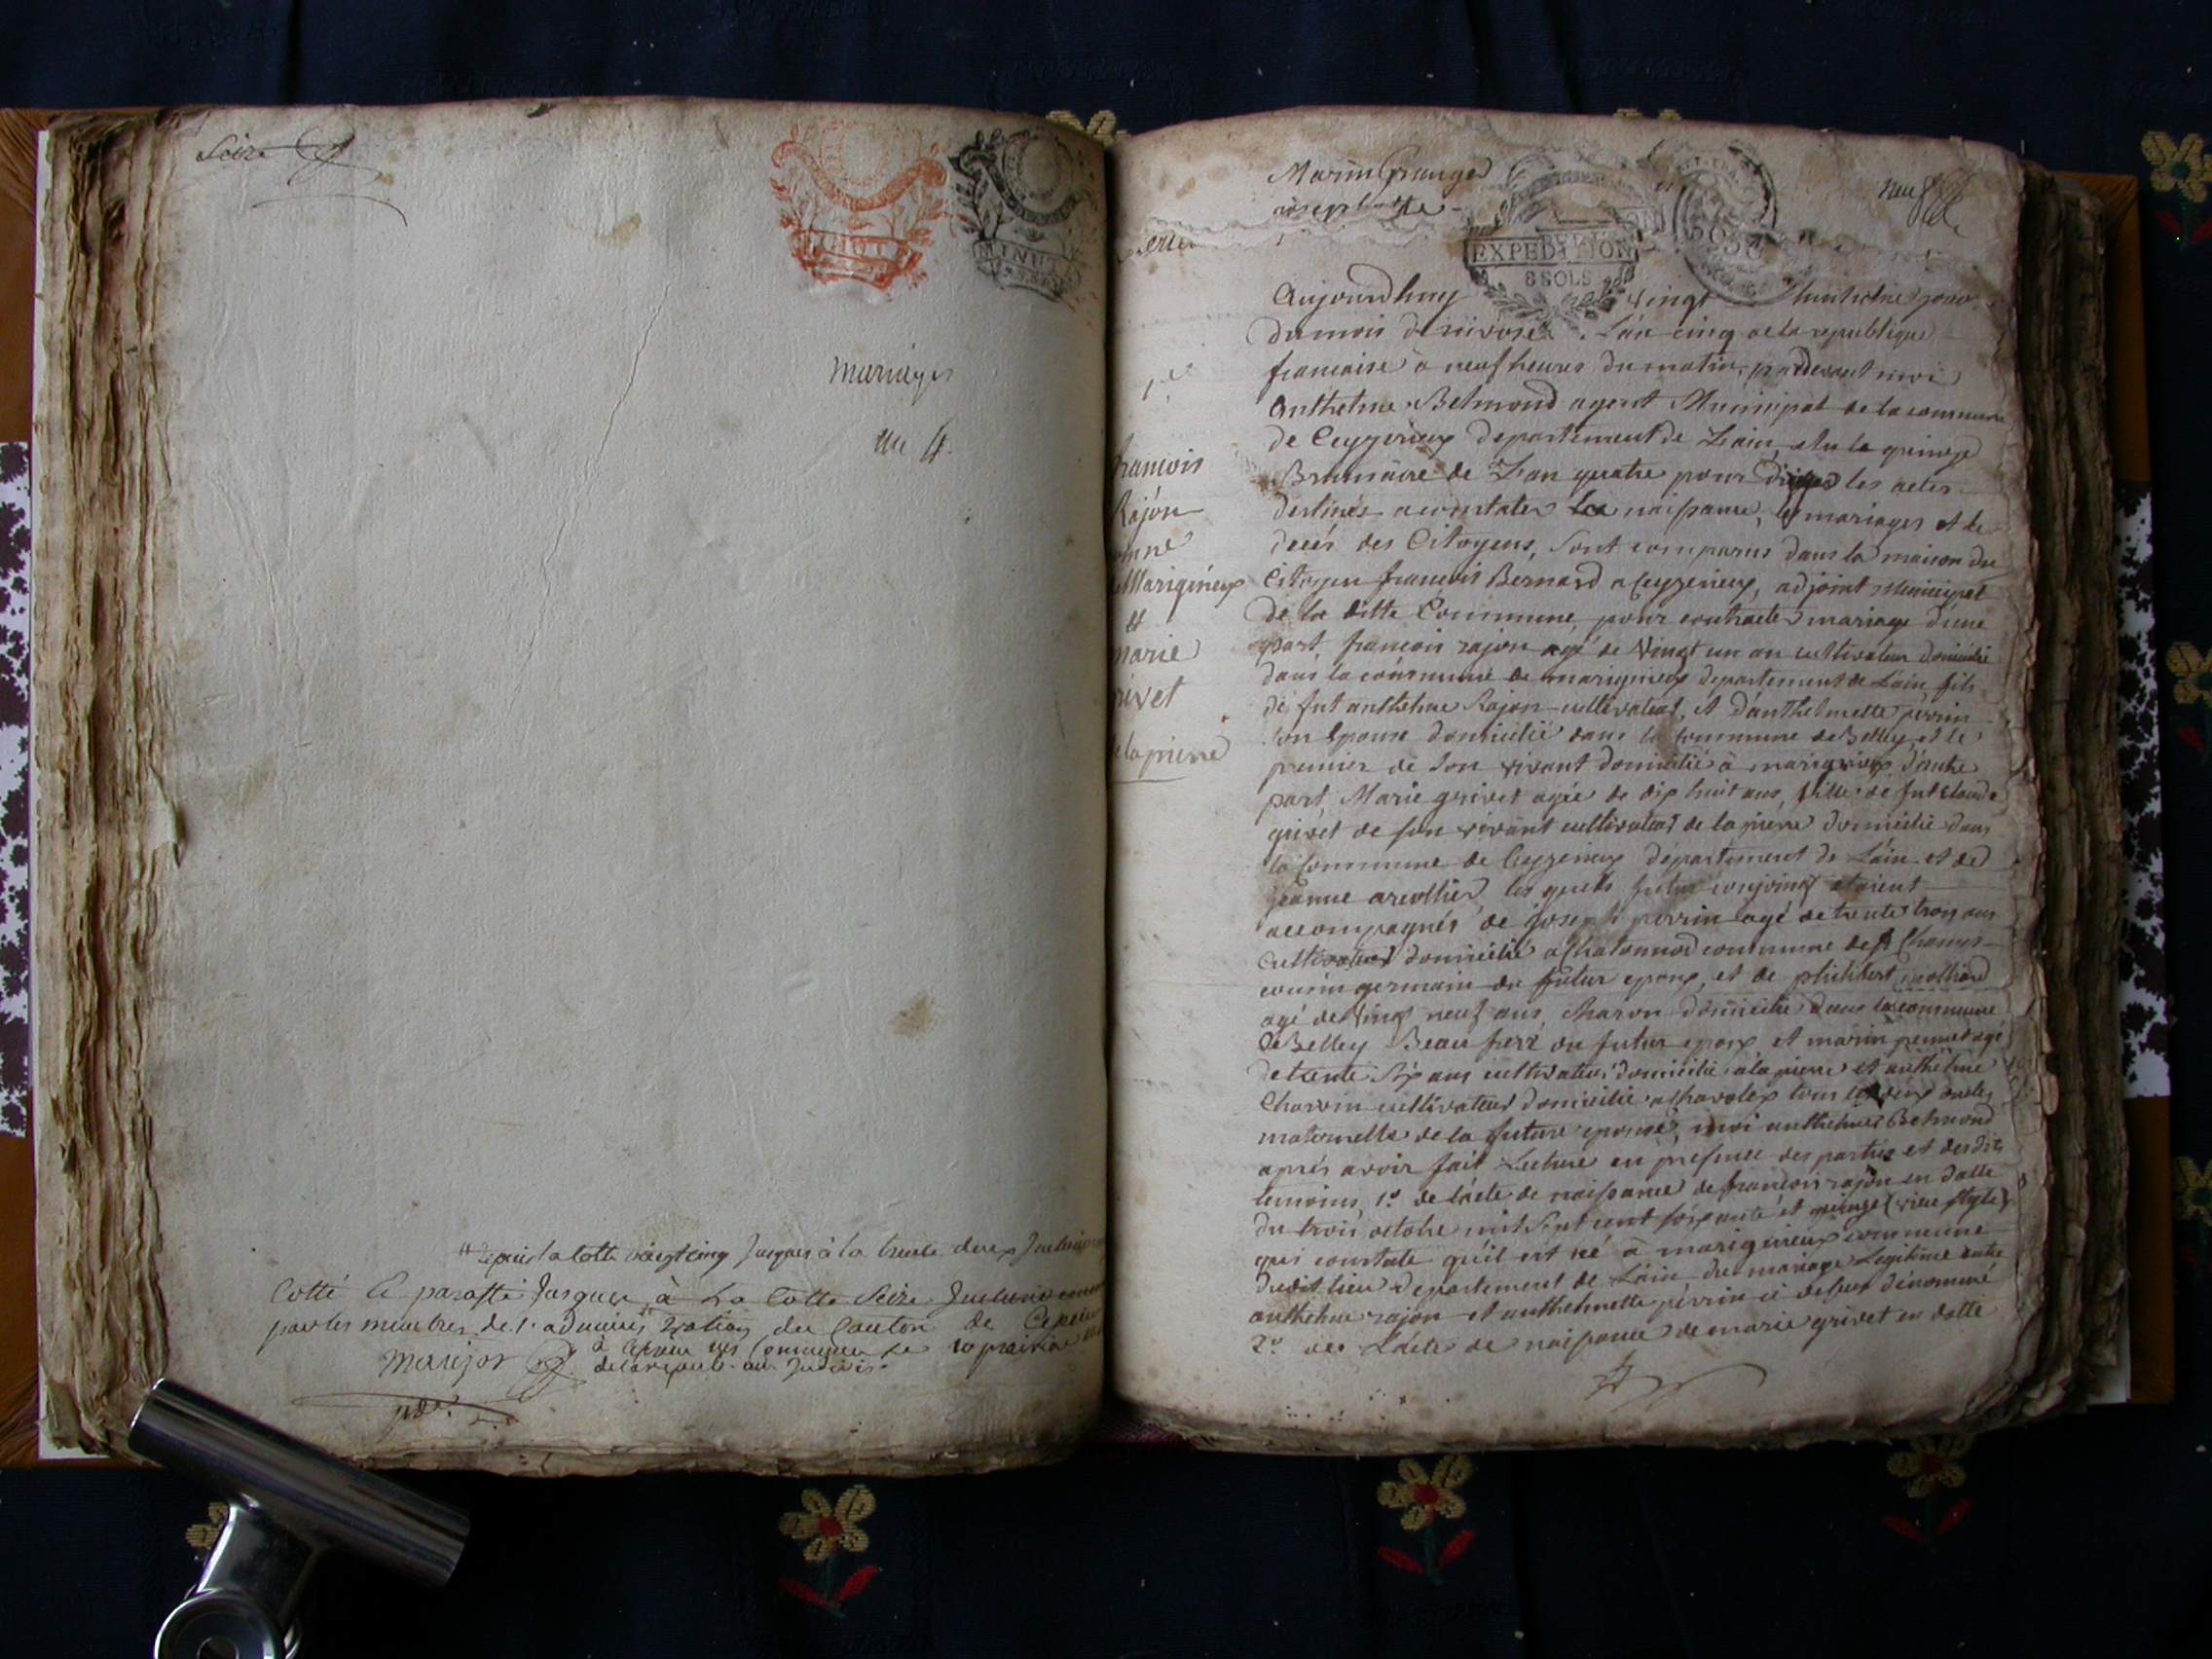 Seize
MINUTE
mariages
an 4.
"Depuis la Cotte vingt cinq Jusques à la trente deux
Cotté et paraffé Jusques à La Cotte Seize
par les membres de l'administration du Canton de
à le prairial
Marijon
Marin Granger
neuf
EXPEDITION
8 SOLS
françois
Rajon
de Marignieux
et
marie
grivet
de la pierre
Aujourdhuy vingt huitieme jour
du mois de nivose. L'an cinq de la republique
francaise à neuf heures du matin, pardevant moi
Anthelme Belmond agent Municipal de la commune
de Ceyzerieux departement de Lain, elu le quinze
Brumaire de L'an quatre pour les actes
destinés a constater les naissance, les mariages et le
decés des Citoyens, sont comparus dans la maison du
Citoyen francois Bernard a Ceyzerieux, adjoint Municipal
de la ditte Commune, pour contracter mariage d'une
part, francois rajon agé de Vingt un an cultivateur domicilié
dans la commune de marignieux departement de Lain, fils
de fut anthelme Rajon cultivateur, et d'anthelmette perrin
son Epouse domicilié dans la commune de Belley, et le
premier de son vivant domicilié à marignieux d'autre
part, Marie grivet agée de dix huit ans, fille de fut Claude
grivet de son vivant cultivateur de la pierre domicilié dans
la Commune de Ceyzerieux departement de Lain et de
jeanne les quels futur conjoints etaient
accompagnés de joseph perrin agé de trente trois ans
cultivateur domicilié a Chatonnod commune de St Champs
cousin germain du futur epoux, et de philibert
agé de Vingt neuf ans, Charon domicilié dans la commune
de Belley Beau frere du futur epoux et marin agé
de trente six ans cultivateur domicilié a la pierre et anthelme
Charvin cultivateur domicilié a tous les deux oncles
maternelle de la future epouse, moi anthelme Belmond
aprés avoir fait Lecture en presence des parties et desdits
temoins, 1.° de l'acte de naissance de francois rajon en datte
du trois octobre mil Sept cent soixante et quinze (vieux style)
qui constate qu'il est né à marignieux commune
dudit lieu departement de Lain du mariage Legitime entre
anthelme rajon et anthelmette perrin ci dessus denommé
2.° de L'acte de naissance de marie grivet en datte